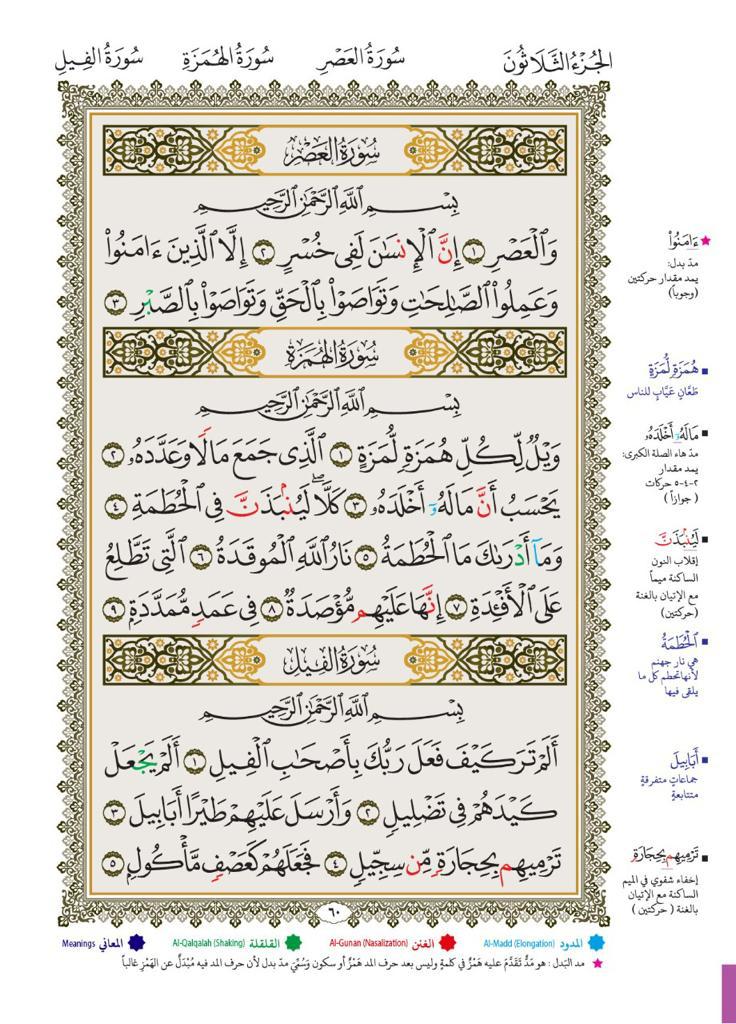 الجُزْءُ الثَّلَاثُونَ سُورَةُ العَصْرِ سُورَةُ الهُمَزَةِ سُورَةُ الفِيلِ
سُورَةُ العَصْرِ
بِسْمِ ٱللَّهِ ٱلرَّحْمَٰنِ ٱلرَّحِيمِ
وَٱلْعَصْرِ ١ إِنَّ ٱلْإِنسَٰنَ لَفِى خُسْرٍ ٢ إِلَّا ٱلَّذِينَ ءَامَنُوا۟
وَعَمِلُوا۟ ٱلصَّٰلِحَٰتِ وَتَوَاصَوْا۟ بِٱلْحَقِّ وَتَوَاصَوْا۟ بِٱلصَّبْرِ ٣
سُورَةُ الهُمَزَةِ
بِسْمِ ٱللَّهِ ٱلرَّحْمَٰنِ ٱلرَّحِيمِ
وَيْلٌ لِّكُلِّ هُمَزَةٍ لُّمَزَةٍ ١ ٱلَّذِى جَمَعَ مَالًا وَعَدَّدَهُۥ ٢
يَحْسَبُ أَنَّ مَالَهُۥٓ أَخْلَدَهُۥ ٣ كَلَّا ۖ لَيُنۢبَذَنَّ فِى ٱلْحُطَمَةِ ٤
وَمَآ أَدْرَىٰكَ مَا ٱلْحُطَمَةُ ٥ نَارُ ٱللَّهِ ٱلْمُوقَدَةُ ٦ ٱلَّتِى تَطَّلِعُ
عَلَى ٱلْأَفْـِٔدَةِ ٧ إِنَّهَا عَلَيْهِم مُّؤْصَدَةٌ ٨ فِى عَمَدٍ مُّمَدَّدَةٍۭ ٩
سُورَةُ الفِيلِ
بِسْمِ ٱللَّهِ ٱلرَّحْمَٰنِ ٱلرَّحِيمِ
أَلَمْ تَرَ كَيْفَ فَعَلَ رَبُّكَ بِأَصْحَٰبِ ٱلْفِيلِ ١ أَلَمْ يَجْعَلْ
كَيْدَهُمْ فِى تَضْلِيلٍ ٢ وَأَرْسَلَ عَلَيْهِمْ طَيْرًا أَبَابِيلَ ٣
تَرْمِيهِم بِحِجَارَةٍ مِّن سِجِّيلٍ ٤ فَجَعَلَهُمْ كَعَصْفٍ مَّأْكُولٍۭ ٥
٦٠
★ ءَامَنُوا۟
مدّ بدل:
يمد مقدار حركتين
(وجوباً)
هُمَزَةٍ لُّمَزَةٍ
طَعَّانٍ عَيَّابٍ للناس
مَالَهُۥٓ أَخْلَدَهُۥ
مدّ هاء الصلة الكبرى:
يمد مقدار
٢-٤-٥ حركات
( جوازاً )
لَيُنۢبَذَنَّ
إقلاب النون
الساكنة ميماً
مع الإتيان بالغنة
(حركتين)
ٱلْحُطَمَةُ
هي نار جهنم
لأنها تحطم كل ما
يلقى فيها
أَبَابِيلَ
جماعاتٍ متفرقةٍ
متتابعةٍ
تَرْمِيهِم بِحِجَارَةٍ
إخفاء شفوي في الميم
الساكنة مع الإتيان
بالغنة ( حركتين )
المدود Al-Madd (Elongation) الغنن Al-Gunan (Nasalization) القلقلة Al-Qalqalah (Shaking) المعاني Meanings
★ مد البَدل : هو مَدٌّ تَقَدَّمَ عليه هَمْزٌ في كلمةٍ وليس بعد حرف المد هَمْزٌ أو سكون وَسُمِّيَ مدّ بدل لأن حرف المد فيه مُبْدَلٌ عن الهَمْزِ غالباً